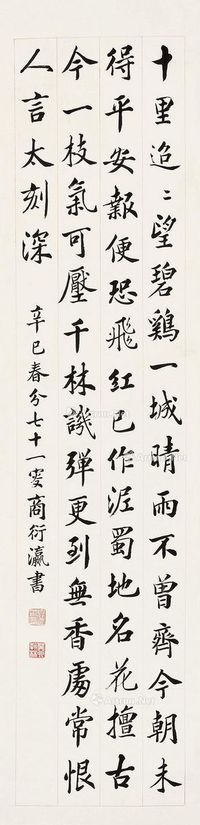 十里迢〻望碧鷄一城晴雨不曾齊今朝未
得平安報便恐飛紅已作泥蜀地名花擅古
今一枝氣可壓千林譏彈更到無香處常恨
人言太刻深
辛巳春分七十一叟商衍瀛書